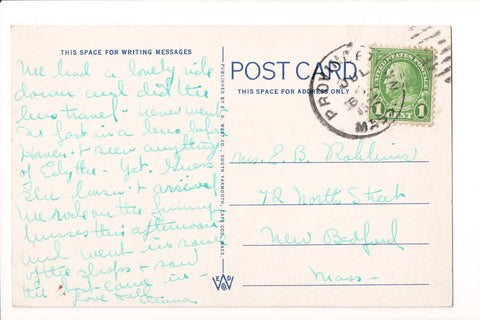 THIS SPACE FOR WRITING MESSAGES
We had a lovely ride
down and did the
bus travel - never went
so fast in a bus before
Haven't seen anything
of Edythe - yet. Guess
she hasn't arrived
We rode on the funny
busses this afternoon
and went in some
of the shops + saw
the boat come in -
Love
PUBLISHED BY E. D. WEST CO., SOUTH YARMOUTH, CAPE COD, MASS.
POST CARD
THIS SPACE FOR ADDRESS ONLY
PROVINCETOWN
MASS.
1 CENT 1
Ms. E. B.
72 North Street
New Bedford
Mass -